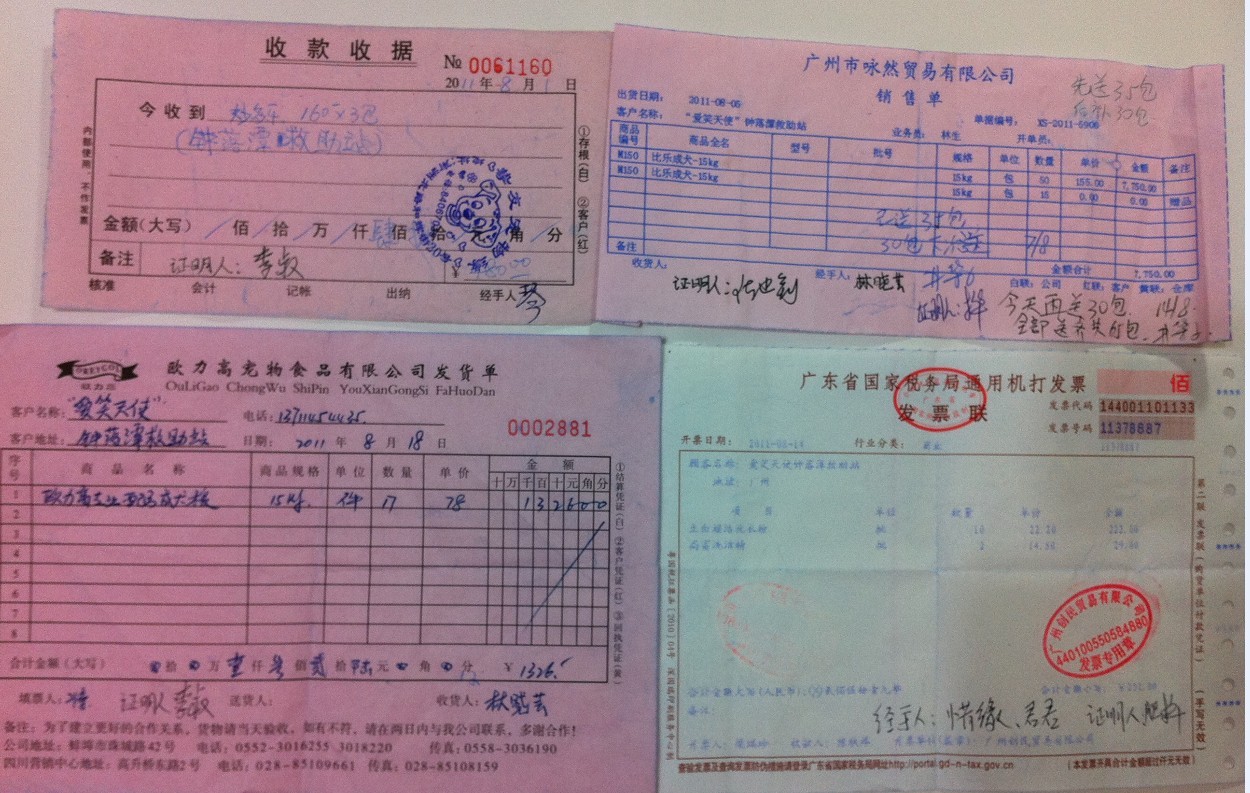 收款收据
№ 0061160
2011年8月1日
今收到 160×3包
(钟落潭救助站)
金额(大写) 佰 拾 万 仟 肆佰 拾 元 角 分
备注 证明人:李叔
核准 会计 记帐 出纳 经手人 琴
内部使用、不作发票
①存根(白) ②客户(红)
广州市咏然贸易有限公司
销售单
先送35包
后补30包
出货日期: 2011-08-05
单据编号: XS-2011-5906
客户名称: “爱笑天使”钟落潭救助站 业务类: 林生 开单员:
商品编号 商品全名 型号 批号 规格 单位 数量 单价 金额 备注
M150 比乐成犬-15kg 15kg 包 50 155.00 7,750.00
M150 比乐成犬-15kg 15kg 包 15 0.00 0.00 赠品
已送35包
30包下次送 7/8
备注 金额合计 7,750.00
收货人: 经手人: 林晓芸 白联:公司 红联:客户 黄联:仓库
证明人:
证明人: 今天再送30包. 14/8.
全部送齐共65包.
欧力高宠物食品有限公司发货单
欧力高
OuLiGao ChongWu ShiPin YouXianGongSi FaHuoDan
客户名称: “爱笑天使” 电话: 13711454435
0002881
客户地址: 钟落潭救助站 日期: 2011年8月18日
序号 商品名称 商品规格 单位 数量 单价 金额
十万千百十元角分
1 欧力高专业配方成犬粮 15kg 件 17 78 132600
2
3
4
5
6
7
8
合计金额(大写) 拾 万 壹仟叁佰贰拾陆元 角 分 ¥1326.
填票人: 证明人 李叔 送货人: 收货人: 林晓芸
备注:为了建立更好的合作关系,货物请当天验收,如有不符,请在两日内与我公司联系,多谢合作!
公司地址:蚌埠市珠城路42号 电话:0552-3016255 3018220 传真:0558-3036190
四川营销中心地址:高升桥东路2号 电话:028-85109661 传真:028-85108159
①结算凭证(白) ②客户凭证(红) ③回执凭证(黄)
广东省国家税务局通用机打发票
佰
发票联
发票代码 144001101133
发票号码 11378887
11378887
开票日期: 2011-08-14 行业分类: 商业
顾客名称: 爱笑天使钟落潭救助站
地址: 广州
单位 数量 单价 金额
10 22.20 222.00
2 14.50 29.00
广州创民贸易有限公司
440100550584880
发票专用章
合计金额大写(人民币):
备注:
经手人:惜缘人、君君 证明人
开票人: 收款人: 开票单位(盖章): 广州创民贸易有限公司
查验发票及查询发票防伪措施请登录广东省国家税务局网址http://portal.gd-n-tax.gov.cn (本发票开具合计金额超过仟元无效)
第二联 发票联(购货单位付款凭证)
(手写无效)